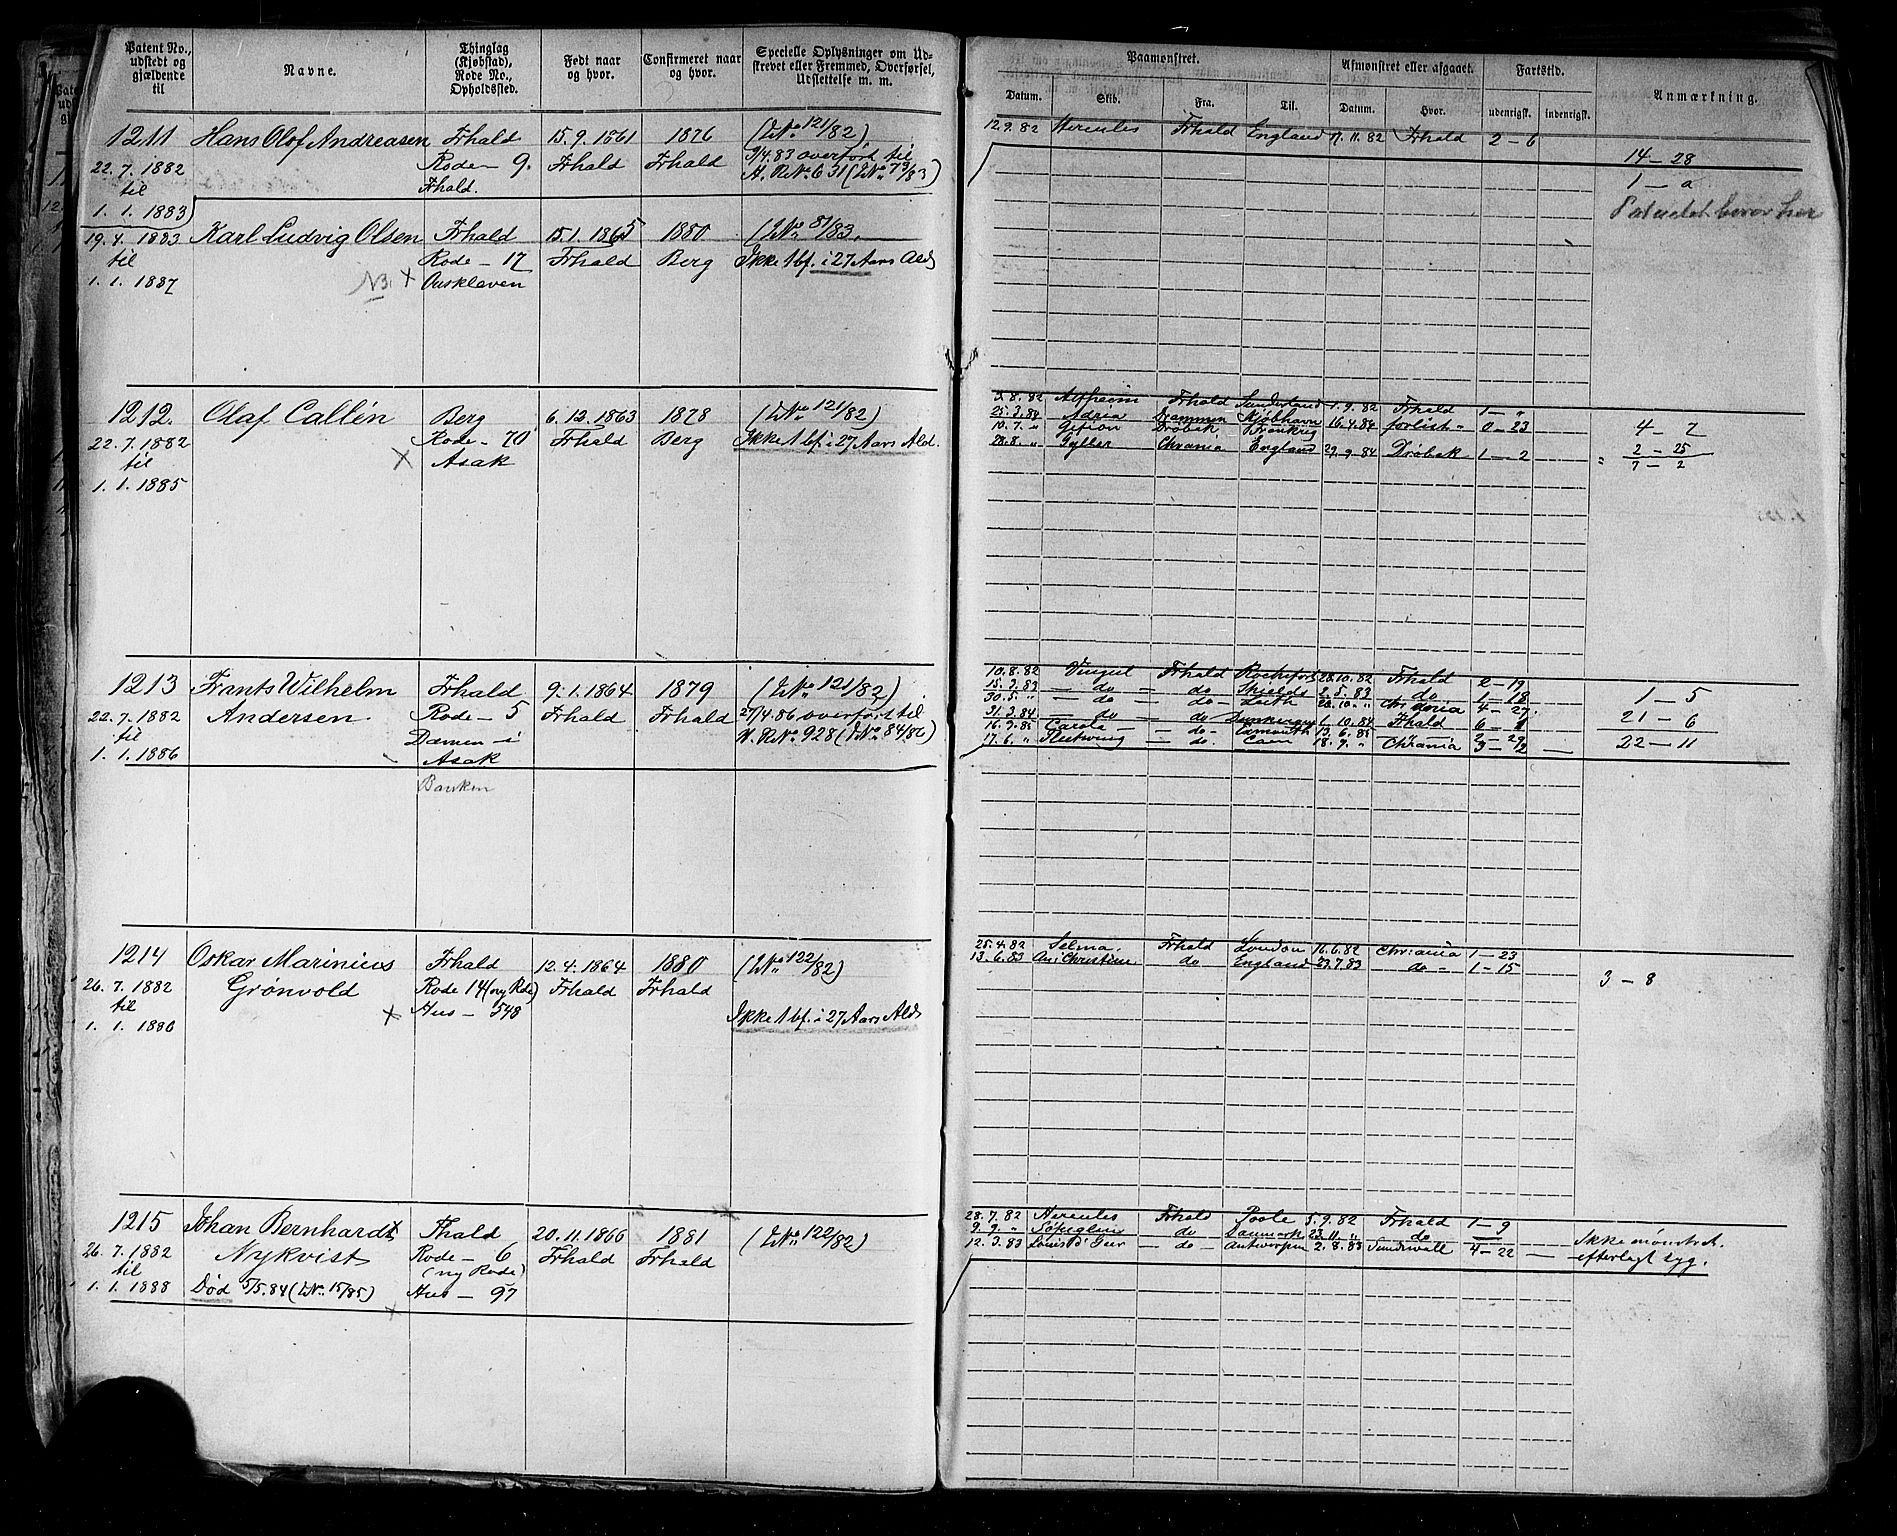 Patent No., udstedt og gjældende til
Navne.
Thinglag (Kjøbstad), Rode No., Opholdssted.
Født naar og hvor.
Confirmeret naar og hvor.
Specielle Oplysninger om Udskrevet eller Fremmed, Overførsel, Udslettelse m. m.
Paamønstret.
Afmønstret eller afgaaet.
Fartstid.
Anmærkning.
Datum. Skib. Fra. Til. Datum. Hvor. udenrigsk. indenrigsk.
1211 Hans Olof Andreasen Frhald 15.9.1861 1876 (J.No 121/82)
22.7.1882 Rode - 9. Frhald Frhald 9/4.83 overført til
til Frhald. H. R.No. 631 (J.No 79/83)
1.1.1883
12.9.82 Hercules Frhald England 17.11.82 Frhald 2-6
14-28
1-a
19.4.1883 Karl Ludvig Olsen Frhald 15.1.1865 1880 (J.No 81/83.
til Rode - 17 Frhald Berg Ikke 1 bf. i 27 Aars Ald
1.1.1887 NB. x
1212. Olaf Callén Berg 6.12.1863 1878 (J.No 121/82)
22.7.1882 Rode - 70 Frhald Berg Ikke 1 bf. i 27 Aars Ald.
til x Asak
1.1.1885
3.8.82 Alfheim Frhald Sunderland 1.9.82 Frhald 1- "
25.3.84 Adria Drammen Kjøbhavn 16.4.84 forlist " 0-23
10.7. " Gefion Drøbak Frankrig
28.8. " Gyller Chrania England 29.9.84 Drøbak 1-2
4-7
2-25
7-2
1213 Frants Wilhelm Frhald 9.1.1864 1879 (J.No 121/82)
22.7.1882 Andersen. Rode - 5 Frhald Frhald 27/4.86 overført til
til Dæmen i H. R.No. 928 (J.No 84/86)
1.1.1886 Asak
Banken
10.8.82 Frhald Rochefort 28.10.82 Frhald 2-19
15.3.83 do - do Shields 2.5.83 do 1-18
30.5. " do - do - Leith Chrania 4-27.
31.3.84 do - do Dunkerque 1.10.84 Frhald 6-1
Carola - do - 13.6.85 2-29
17.6. " Sleipner - do. Caen 18.9. " Chrania 3-2
1-5
21-6
22-11
1214 Oskar Marinius Frhald 12.4.1864 1880 (J.No 122/82)
26.7.1882 Grönvold Rode 14 (ny Rde) Frhald Frhald
til x Hus - 548 Ikke 1 bf. i 27 Aars Ald
1.1.1880
25.4.82 Selma. Frhald London 16.6.82 Chr:ania 1-23
13.6.83 An: Christine do England 23.7.83 do - 1-15
3-8
1215 Johan Bernhardt Fhald 20.11.1866 1881 (J.No 122/82)
26.7.1882 Nykvist Rode - 6 Frhald Frhald
til (ny Rode)
1.1.1888 Død 5/5.84 (J.No. 15/85) Hus - 97
x
28.7.82 Hercules Frhald Poole 5.9.82 Frhald 1-9
9.9. " do Danmark 23.11. " do
12.3.83 - do - Antwerpen 2.8.83 Sundswall 4-22
Ikke mønstret.
efterlagt syg.